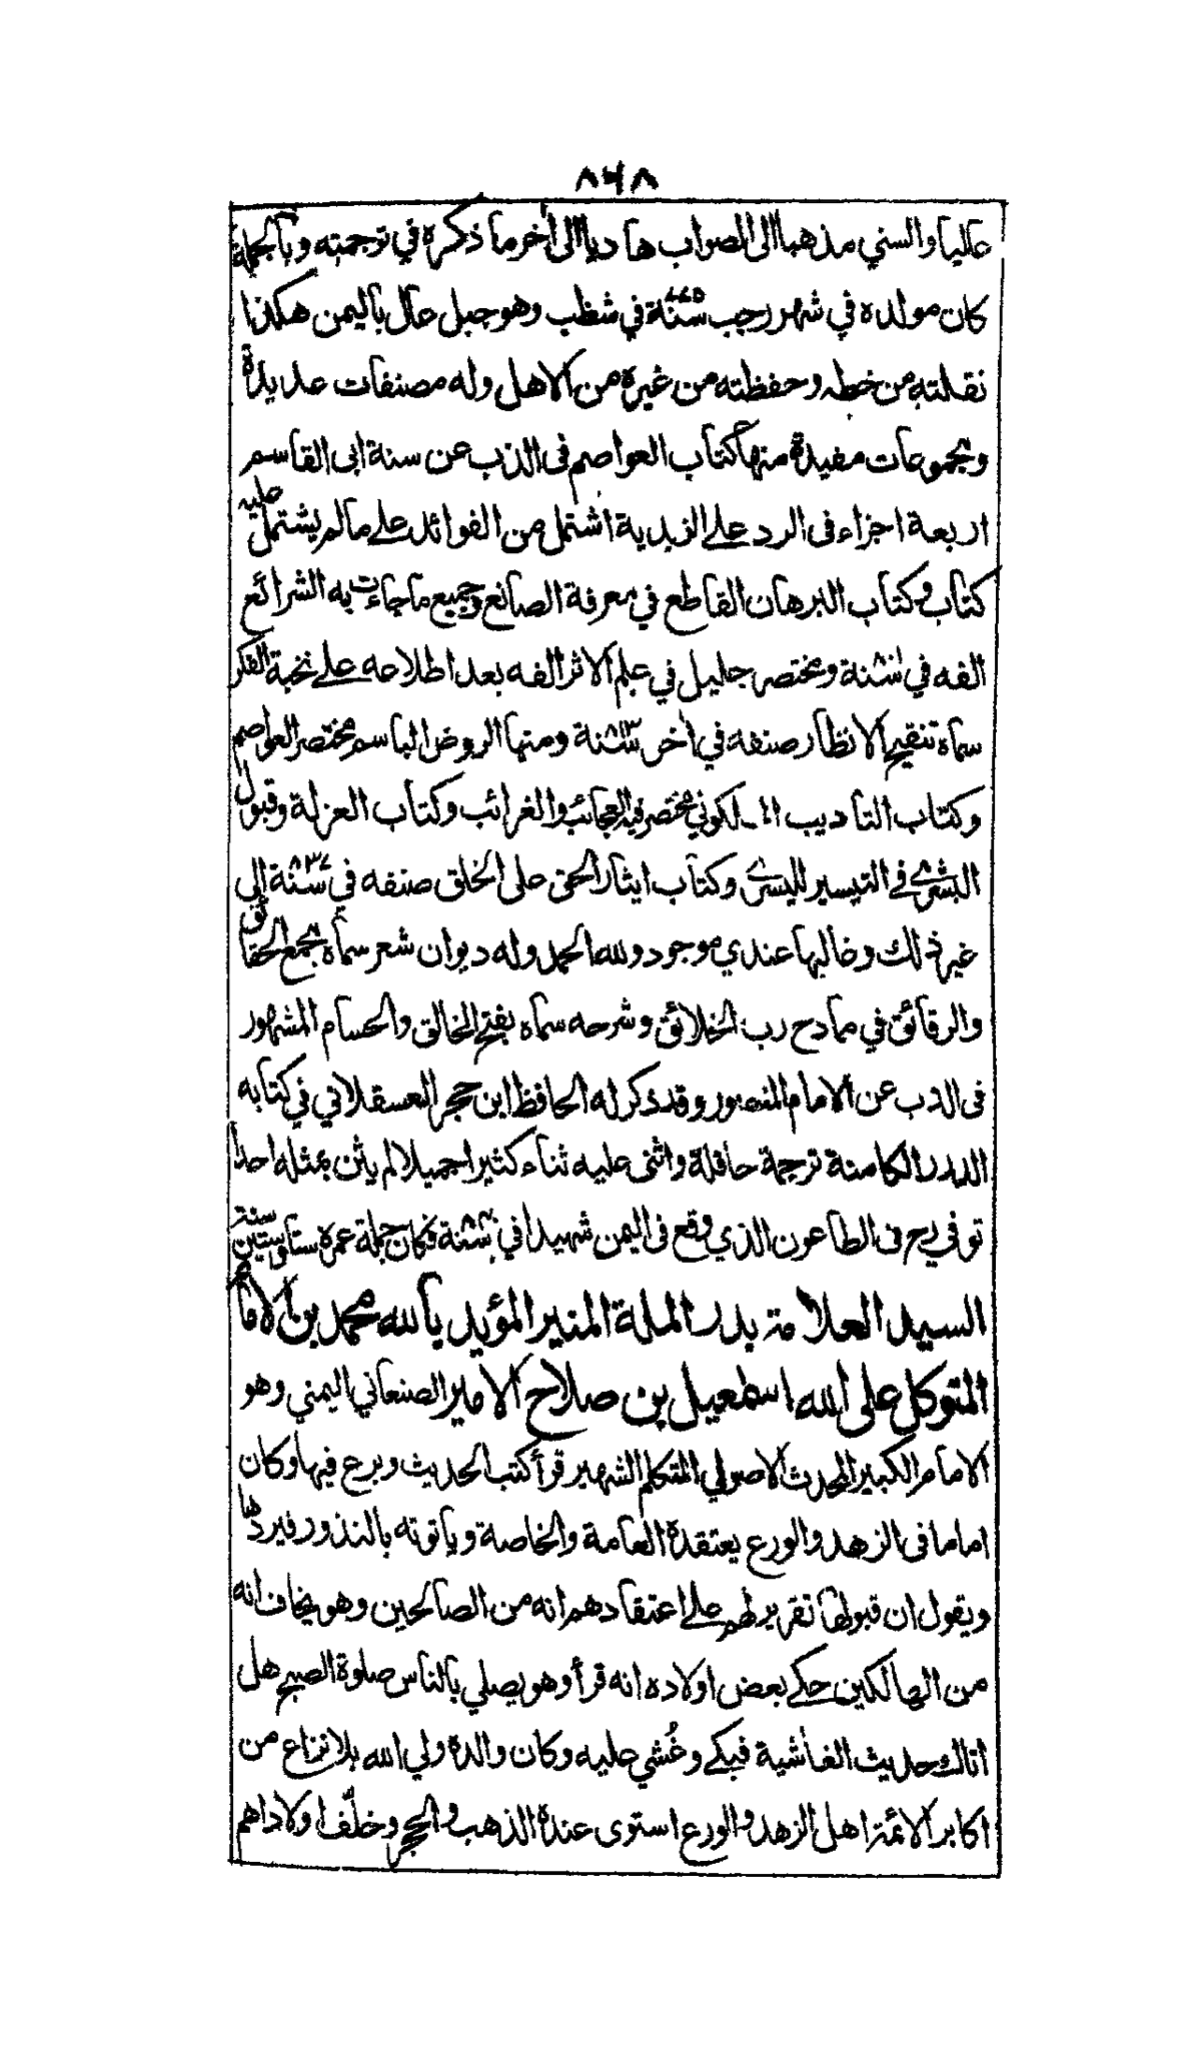 ٨٦٨
عاليا والسني مذهبا الى الصواب هاديا الى أخر ما ذكره في ترجمته وبالجملة
كان مولده في شهر رجب سنة ٧٧٥ في شظب وهو جبل عال باليمن هكذا
نقلته من خطه وحفظته من غيره من الاهل وله مصنفات عديدة
ومجموعات مفيدة منها كتاب العواصم فى الذب عن سنة ابى القاسم
اربعة اجزاء فى الرد على الزيدية اشتمل من الفوائد على مالم يشتمل عليه
كتاب وكتاب البرهان القاطع في معرفة الصانع وجميع ما جاءت به الشرائع
الفه في سنة ومختصر جليل في علم الاثر الفه بعد اطلاعه على نخبة الفكر
سماه تنقيح الانظار صنفه في أخر سنة ٨١٣ ومنها الروض الباسم مختصر العواصم
وكتاب التأديب الملكوني مختصر فيه العجائب والغرائب وكتاب العزلة وقبول
البشرى فى التيسير لليسرى وكتاب ايثار الحق على الخلق صنفه في سنة ٨٣٧ إلى
غير ذلك وغالبها عندي موجود ولله الحمد وله ديوان شعر سماه مجمع الحقائق
والرقائق في ممادح رب الخلائق وشرحه سماه بفتح الخالق والحسام المشهور
فى الذب عن الامام المنصور وقد ذكر له الحافظ ابن حجر العسقلاني في كتابه
الدرر الكامنة ترجمة حافلة واثنى عليه ثناء كثيرا جميلا لم يثن بمثله احدا
توفي رح فى الطاعون الذي وقع فى اليمن شهيدا في سنة فكان جملة عمره ستا وستين سنة
السيد العلامة بدر الملة المنير المؤيد بالله محمد بن الامام
المتوكل على الله اسمعيل بن صلاح الامير الصنعاني اليمني وهو
الامام الكبير المحدث الاصولي المتكلم الشهير قرأ كتب الحديث وبرع فيها وكان
اماما فى الزهد والورع يعتقده العامة والخاصة وياتوته بالنذور فيردها
ويقول ان قبولها تقرير لهم على اعتقادهم انه من الصالحين وهو يخاف انه
من الهالكين حكى بعض اولاده انه قرأ وهو يصلي بالناس صلوة الصبح هل
اتاك حديث الغاشية فبكى وغُشي عليه وكان والده ولي الله بلا نزاع من
اكابر الائمة اهل الزهد والورع استوى عنده الذهب والحجر وخلّف اولادا هم